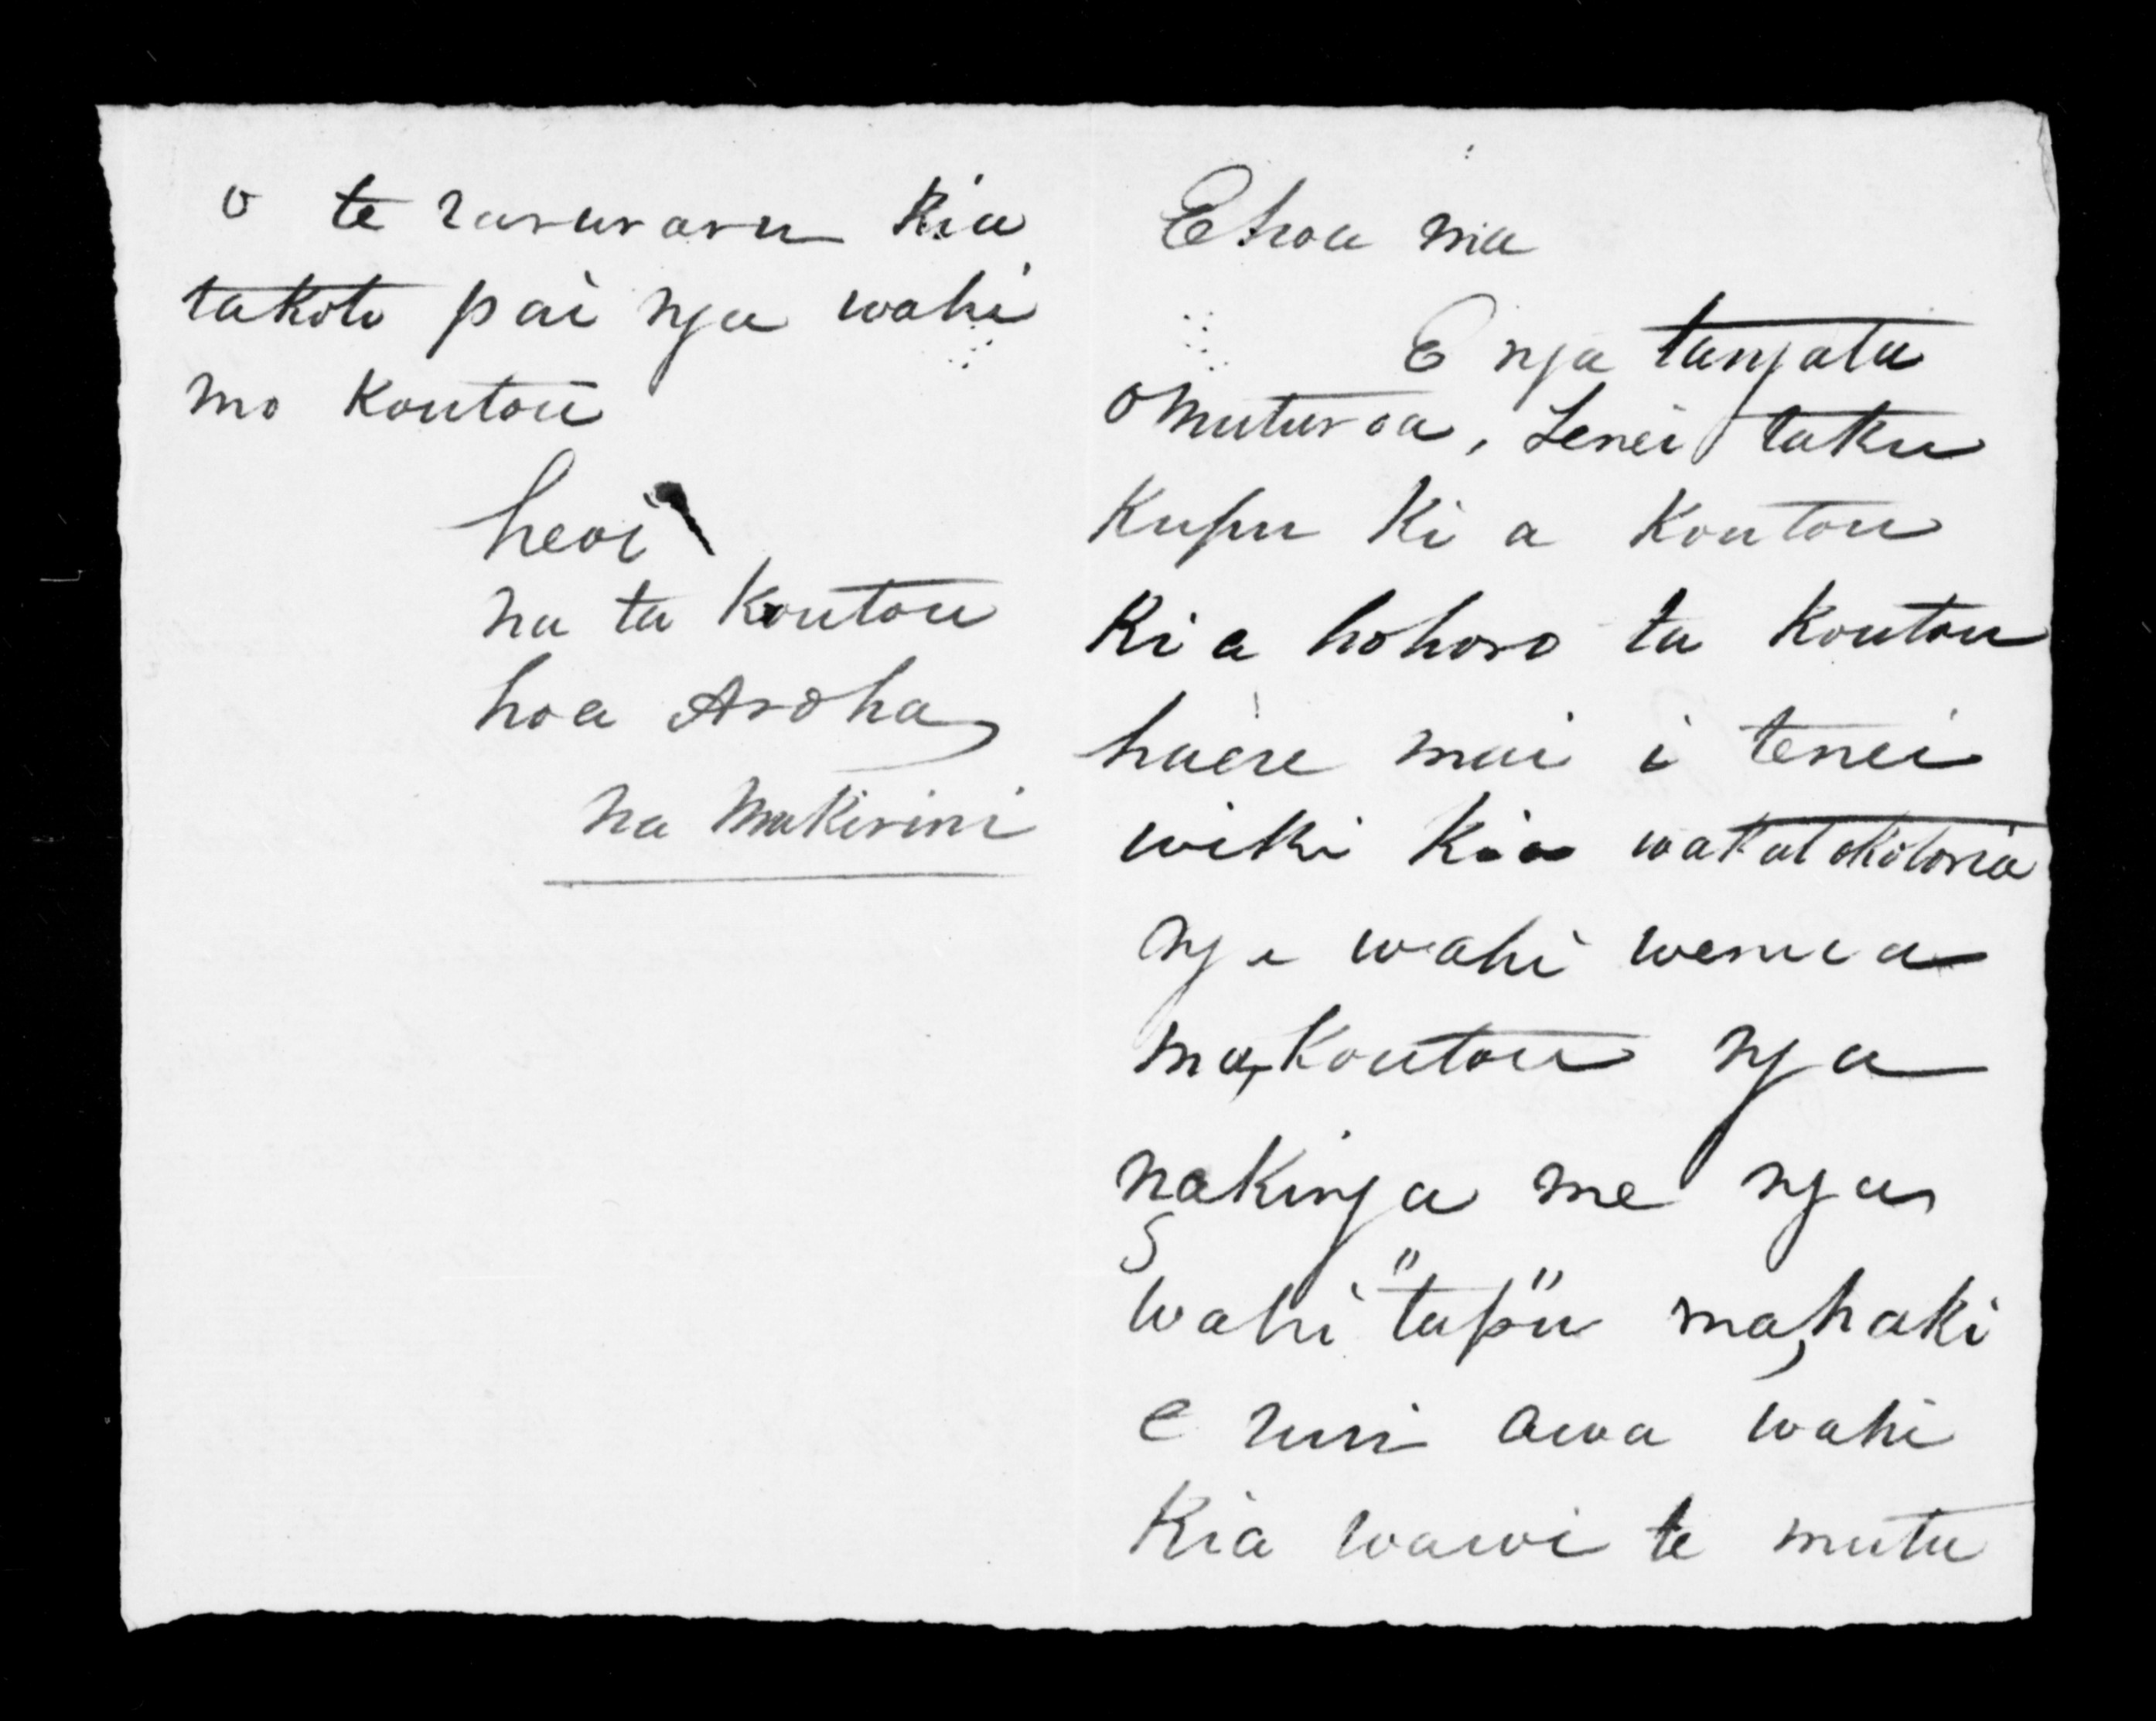 E hoa ma
E nga tangata
o Muturoa, Tenei taku
kupu ki a koutou
kia hohoro ta koutou
haere mai i tenei
wiki kia wakatakotoria
nga wahi wenua
ma, koutou nga
nakinga me nga
wahi "tapu" ma, haki
e ruri awa wahi
Kia wawi te mutu
o te raruraru kia
takoto pai nga wahi
mo koutou
heoi
na ta koutou
hoa Aroha
na Makirini